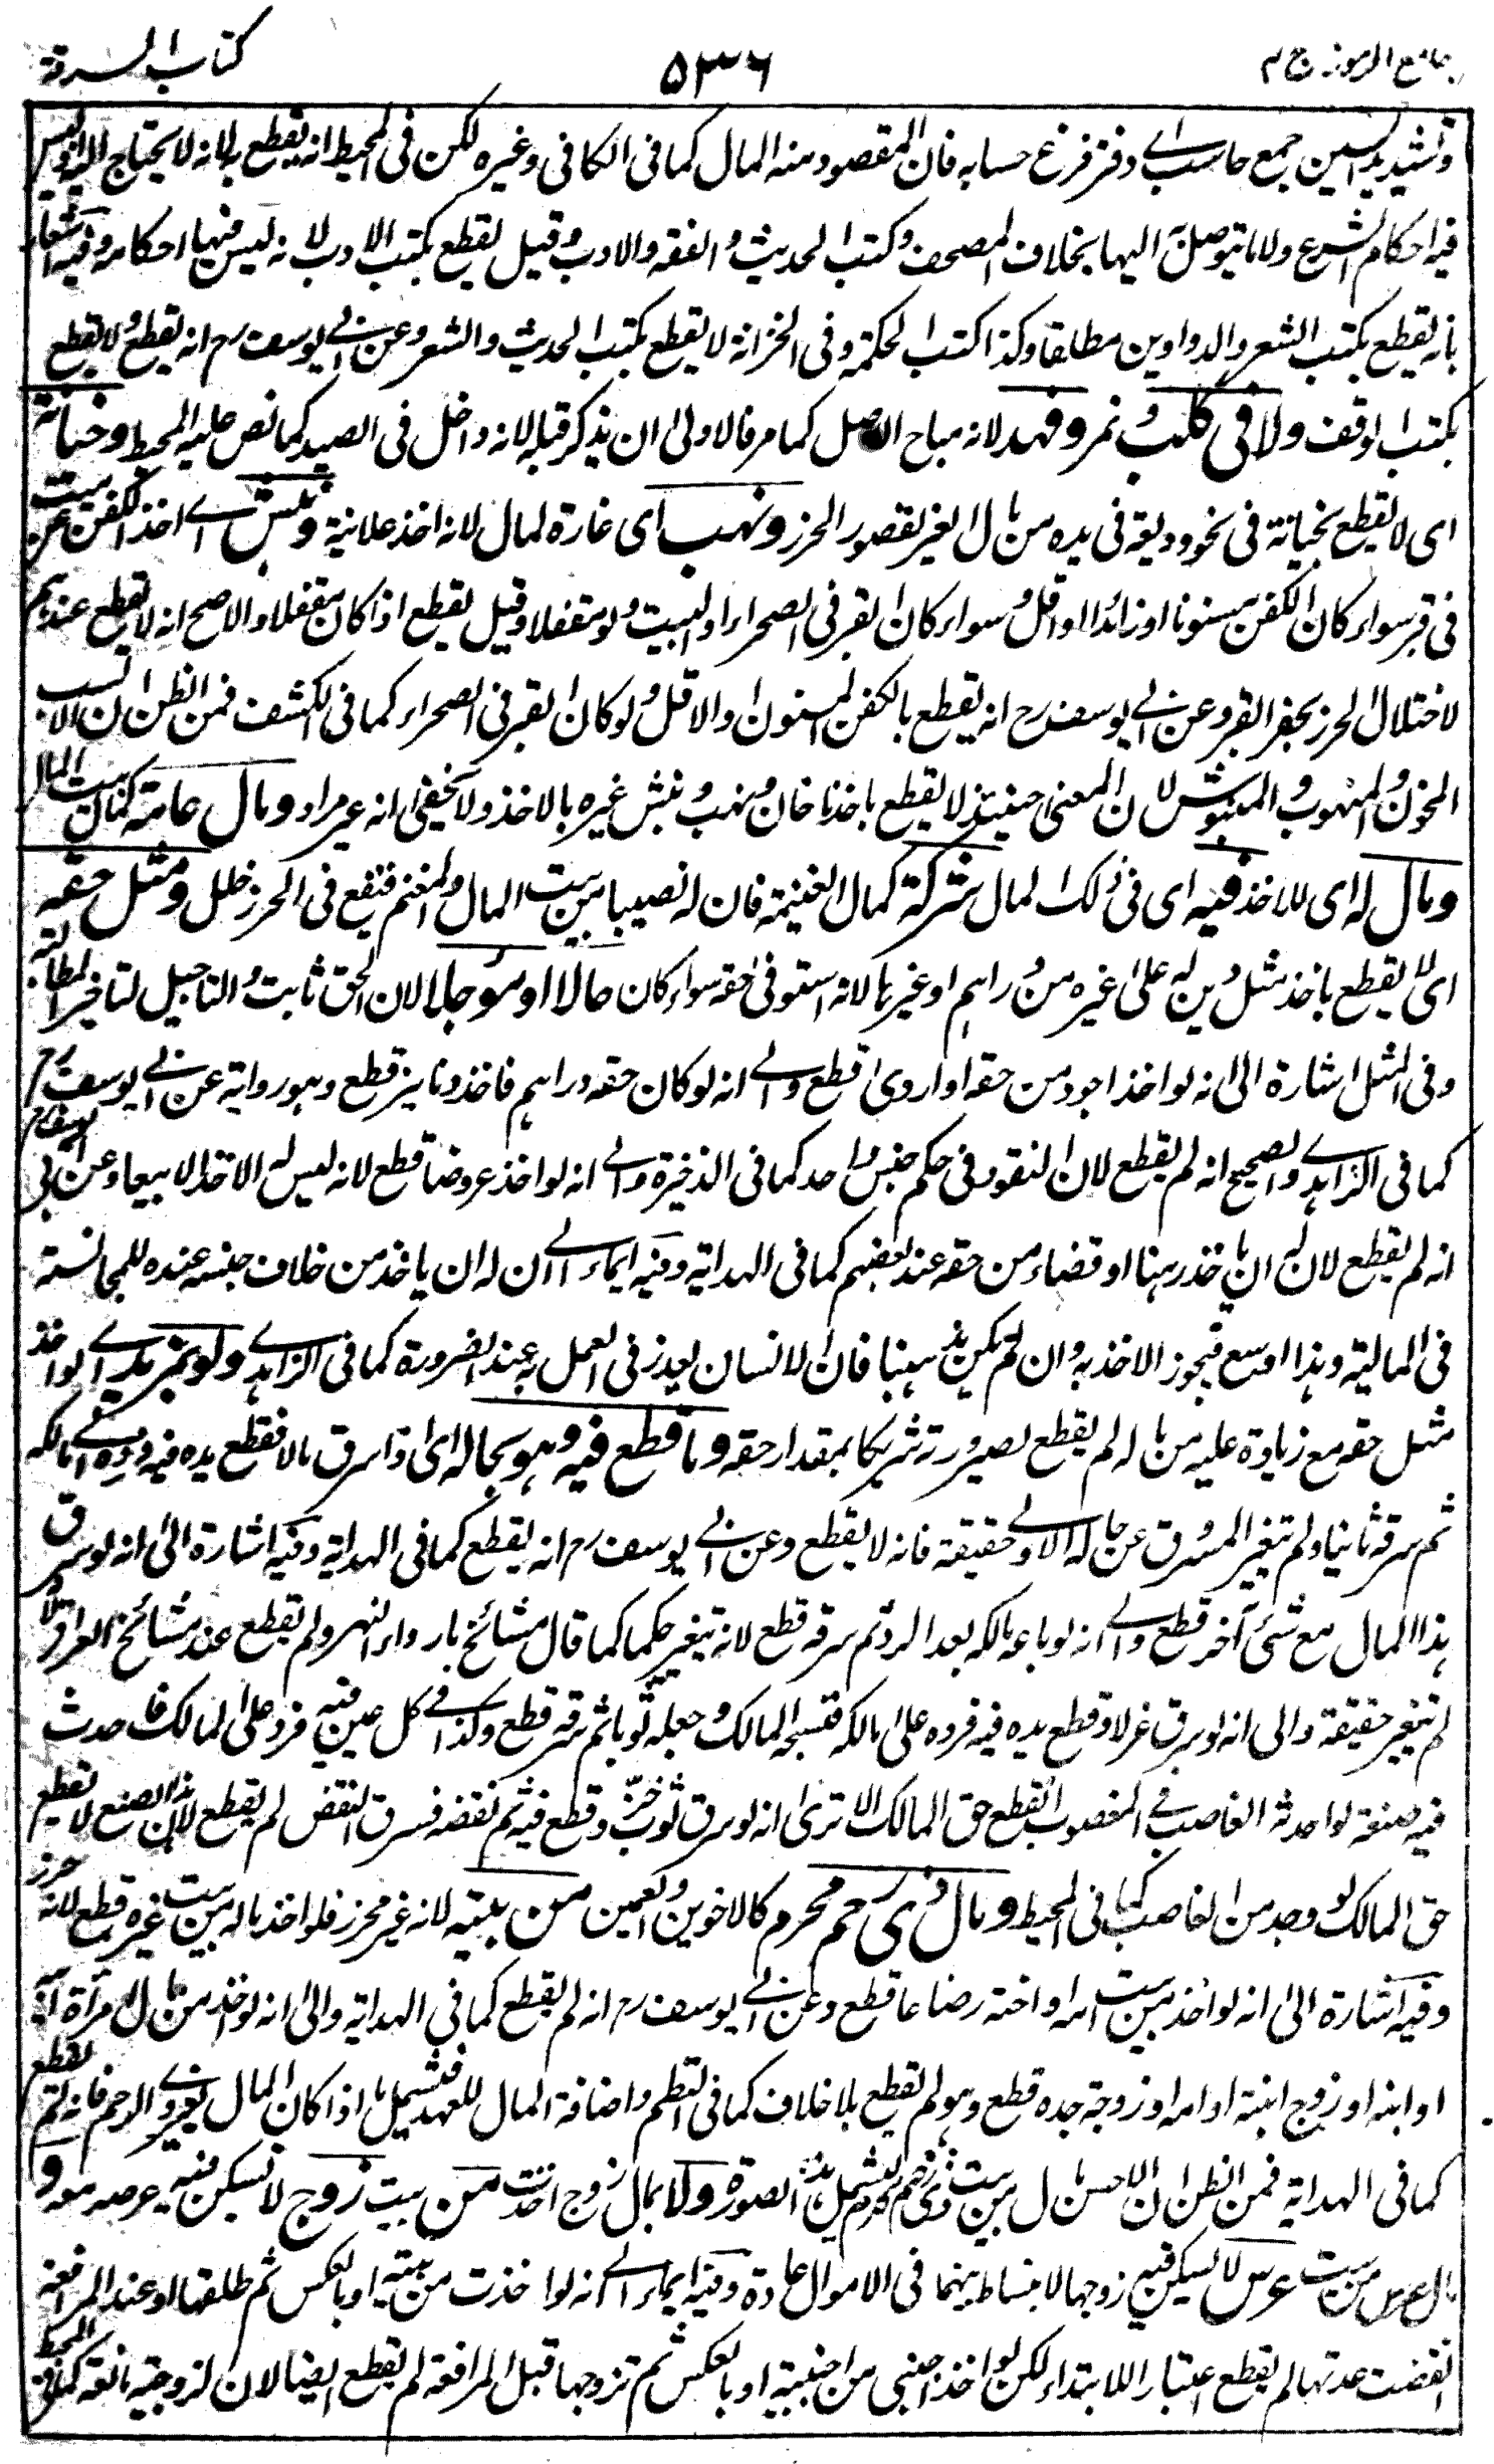 جامع الرموز ج ٢
٥٣٦
كتاب السرقة
وتشديد السين جمع حاسب اے دفتر فرغ حسابه فان المقصود منه المال كما فى الكافى وغيره لكن فى المحيط انه يقطع به لانه لا يحتاج اليه وليس
فيه احكام الشرع ولا ما يتوصل به اليها بخلاف المصحف وكتب الحديث والفقه والادب وقيل يقطع بكتب الادب لانه ليس فيها احكامه وفيه اشعار
بانه يقطع بكتب الشعر والدواوين مطلقا وكذا كتب الحكمة وفى الخزانة لا يقطع بكتب الحديث والشعر وعن ابى يوسف رح انه يقطع ولا يقطع
بكتب الوقف ولا فى كلب ونمر وفهد لانه مباح الاصل كما مر فالاولى ان يذكر قبله لانه داخل فى الصيد كما نص عليه المحيط وخيانة
اى لا يقطع بخيانة فى نحو وديعة فى يده من مال الغير لقصور الحرز ونهب اى غارة لمال لانه اخذ علانية ونبش اے اخذ الكفن عن ميت
فى قبر سواء كان الكفن مسنونا او زائدا او اقل وسواء كان القبر فى الصحراء او البيت ولو مقفلا وقيل يقطع اذا كان مقفلا والاصح انه لا يقطع عندهم
لاختلال الحرز بحفر القبر وعن ابى يوسف رح انه يقطع بالكفن المسنون او الاقل ولو كان القبر فى الصحراء كما فى الكشف فمن الظن ان الانسب
المخون والمنهوب والمنبوش لان المعنى حينئذ لا يقطع باخذ ما خان ونهب ونبش غيره بالاخذ ولا يخفى انه غير مراد ومال عامة كمال بيت المال
ومال له اى للاخذ فيه اى فى ذلك المال شركة كمال الغنيمة فان له نصيبا من بيت المال والمغنم فيقع فى الحرز خلل ومثل حقه
اى لا يقطع باخذ مثل دين له على غيره من دراهم او غيرها لانه استوفى حقه سواء كان حالا او مؤجلا لان الحق ثابت والتاجيل لتاخير المطالبة
وفى المثل اشارة الى انه لو اخذ اجود من حقه او اردى قطع والى انه لو كان حقه دراهم فاخذ دنانير قطع وهو رواية عن ابى يوسف رح
كما فى الزاهدے والصحيح انه لم يقطع لان النقود فى حكم جنس واحد كما فى الذخيرة والى انه لو اخذ عروضا قطع لانه ليس له الاخذ الا بيعا وعن ابى يوسف رح
انه لم يقطع لان له ان ياخذ رهنا او قضاء من حقه عند بعضهم كما فى الهداية وفيه ايماء الى ان له ان ياخذ من خلاف جنسه عنده للمجانسة
فى المالية وهذا اوسع فيجوز الاخذ به وان لم يكن مذهبنا فان الانسان يعذر فى العمل به عند الضرورة كما فى الزاهدے ولو بمزيد اے لو اخذ
مثل حقه مع زيادة عليه من ماله لم يقطع لصيرورته شريكا بمقدار حقه وما قطع فيه وهو بحاله اى اذا سرق مالا فقطع يده فيه ورده الى مالكه
ثم سرقه ثانيا ولم يتغير المسروق عن حاله الاولى حقيقة فانه لا يقطع وعن ابى يوسف رح انه يقطع كما فى الهداية وفيه اشارة الى انه لو سرق
هذا المال مع شئ آخر قطع والى انه لو باعه مالكه بعد الرد ثم سرقه قطع لانه تغير حكما كما قال مشائخ ما وراء النهر ولم يقطع عند مشائخ العراق لانه
لم يتغير حقيقة والى انه لو سرق غزلا وقطع يده فيه فرده على مالكه فنسجه المالك وجعله ثوبا ثم سرقه قطع وكذا فى كل عين فيه فرد على المالك فاحدث
فيه صنعة لو احدثه الغاصب فى المغصوب انقطع حق المالك الا ترى انه لو سرق ثوب خز وقطع فيه ثم نقضه فسرق النقض لم يقطع لان هذا الصنع لا يقطع
حق المالك لو وجد من الغاصب كما فى المحيط ومال ذى رحم محرم كالاخوين والعمين من بيته لانه غير محرز فلو اخذ ماله من بيت غيره قطع لانه حرز
وفيه اشارة الى انه لو اخذ من بيت امه او اخته رضاعا قطع وعن ابى يوسف رح انه لم يقطع كما فى الهداية والى انه لو اخذ من مال امرأة ابيه
او ابنه او زوج ابنته او امه او زوجة جده قطع وهو لم يقطع بلا خلاف كما فى النظم واضافة المال للعهد فيشمل ما اذا كان المال لغير ذى الرحم فانه لم يقطع
كما فى الهداية فمن الظن ان الاحسن مال من بيت ذى رحم محرم ليشمل هذه الصورة ولا بمال زوج اخذت من بيت زوج لا تسكن فيه عرسه معه و
مال عرس من بيت عرس لا يسكن فيه زوجها لانبساط بينهما فى الاموال عادة وفيه ايماء الى انه لو اخذت من بيته او بالعكس ثم طلقها ولو عند المرافعة
انقضت عدتها لم يقطع اعتبارا للابتداء لكن لو اخذ اجنبى من اجنبية او بالعكس ثم تزوجها قبل المرافعة لم يقطع ايضا لان الزوجية مانعة كما فى المحيط